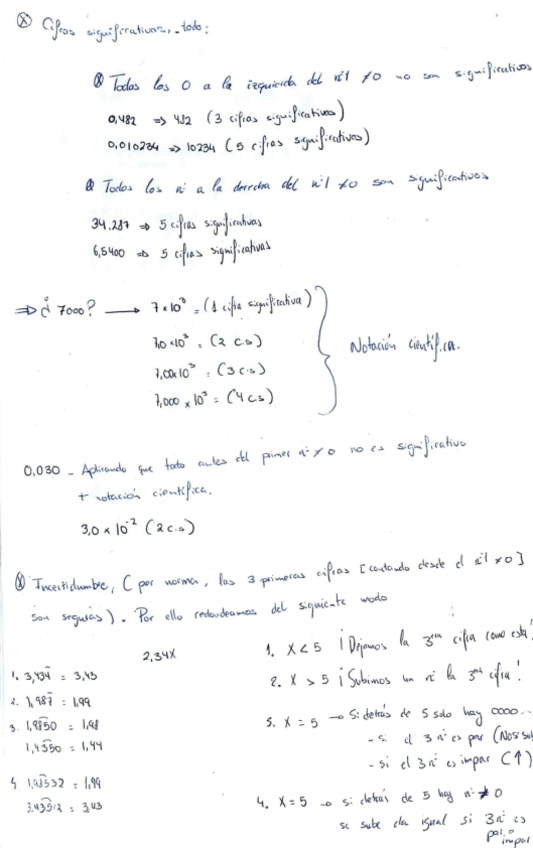 Cifras significativas, todo:
Todos los 0 a la izquierda del nº1 ≠0 no son significativos
0,482 => 482 (3 cifras significativas)
0,010234 => 10234 (5 cifras significativas)
Todos los nº a la derecha del nº1 ≠0 son significativos
34.287 => 5 cifras significativas
6,5400 => 5 cifras significativas
=> ¿ 7000? → 7 x 10³ = (1 cifra significativa)
7,0 x 10³ = (2 c.s)
7,00x10³ = (3 c.s)
7,000 x 10³ = (4 c.s)
Notación científica.
0,030 - Aplicando que todo antes del primer nº ≠ 0 no es significativo
+ notación científica.
3,0 x 10⁻² (2 c.s)
Incertidumbre, ( por norma, las 3 primeras cifras [contando desde el nº1 ≠0]
son seguras). Por ello redondeamos del siguiente modo
2,34X
1. X < 5 ¡Dejamos la 3era cifra como está!
2. X > 5 ¡Subimos un nº la 3era cifra!
3. X = 5 → Si detrás de 5 solo hay 0000...
- si el 3 nº es par (No
- si el 3 nº es impar (↑)
4. X = 5 → si detrás de 5 hay nº ≠ 0
se sube da igual si 3 nº es
par o
impar
1. 3,434 = 3,43
2. 1,987 = 1,99
3. 1,9850 = 1,98
1,4350 = 1,44
4. 1,98532 = 1,99
= 3,43